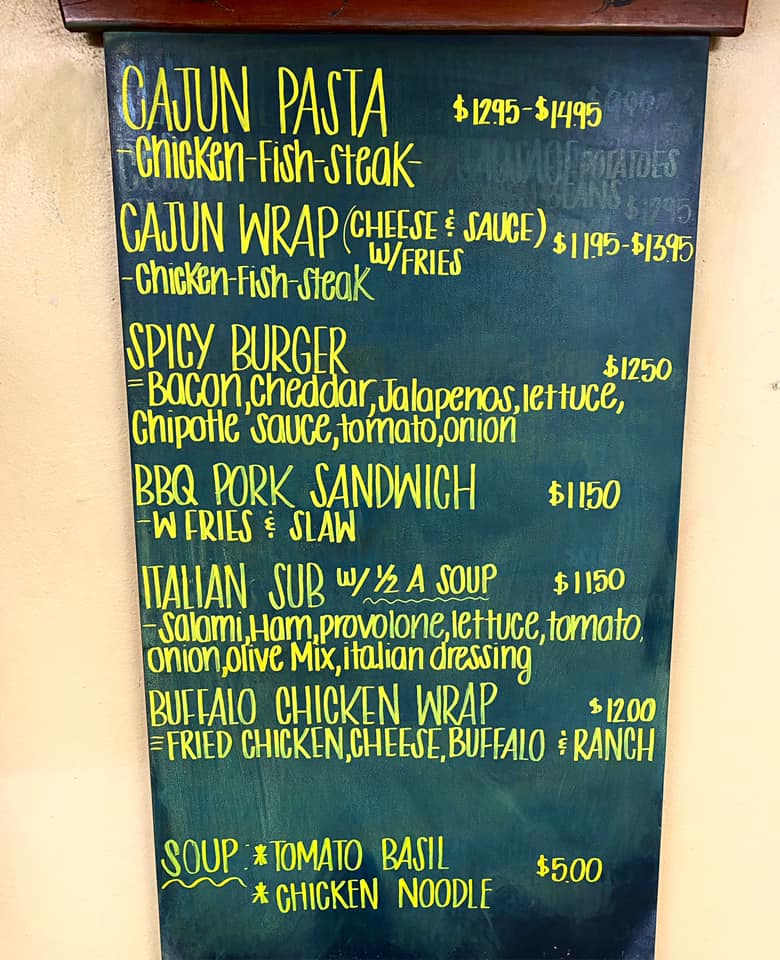 CAJUN PASTA $12.95-$14.95
-Chicken-Fish-Steak-
POTATOES
BEANS $12.95
CAJUN WRAP (CHEESE & SAUCE) $11.95-$13.95
W/FRIES
-Chicken-Fish-Steak
SPICY BURGER $12.50
=Bacon,Cheddar,Jalapenos,lettuce,
Chipotle sauce,tomato,onion
BBQ PORK SANDWICH $11.50
-W FRIES & SLAW
ITALIAN SUB W/ ½ A SOUP $11.50
-Salami,Ham,provolone,lettuce,tomato,
onion,olive Mix,italian dressing
BUFFALO CHICKEN WRAP $12.00
=FRIED CHICKEN,CHEESE,BUFFALO & RANCH
SOUP: *TOMATO BASIL $5.00
*CHICKEN NOODLE